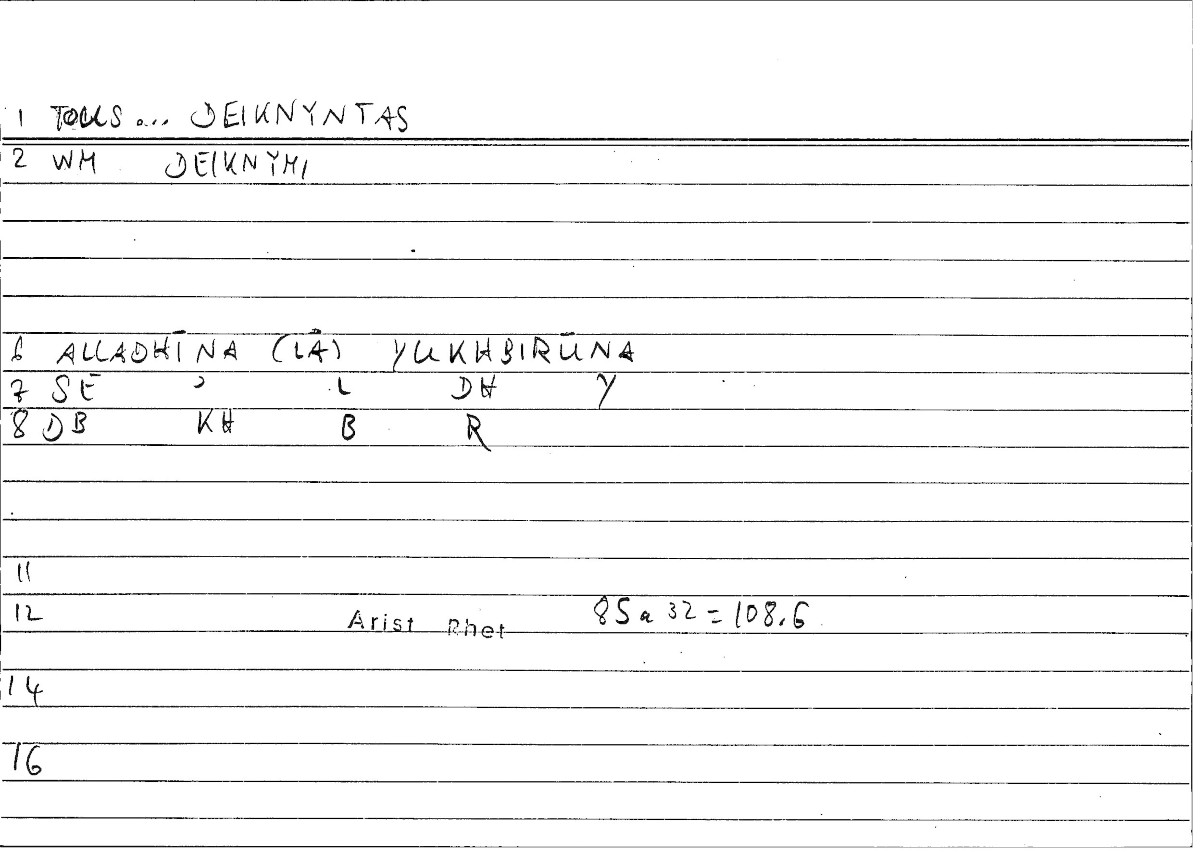 1 TOUS ... DEIKNYNTAS
2 WM DEIKNYMI
6 ALLADHĪNA (LĀ) YUKHBIRŪNA
7 SE ʾ L DH Y
8 DB KH B R
11
12 Arist Rhet 85a32=108.6
14
16